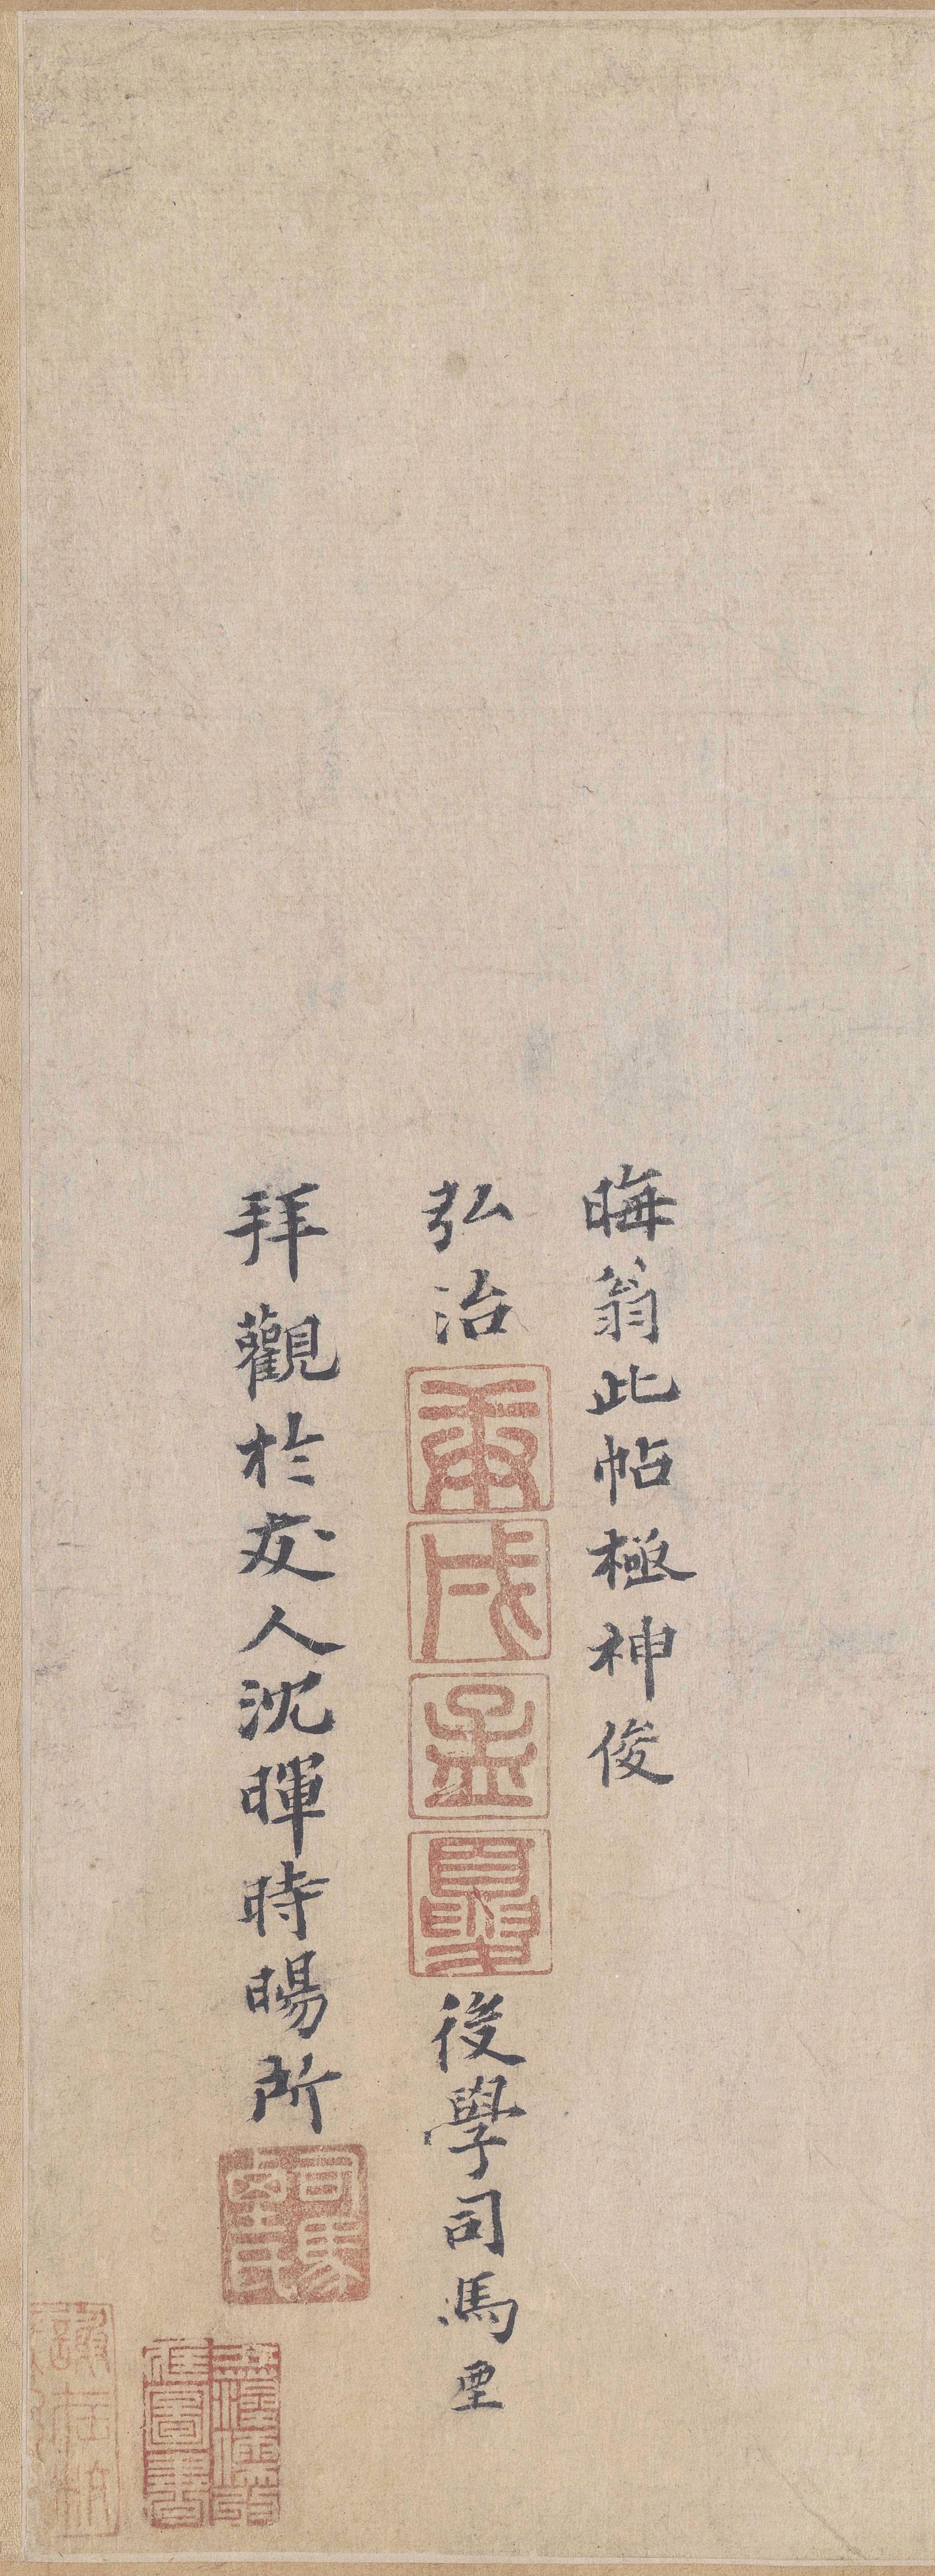 晦翁此帖極神俊
弘治庚戌孟夏後學司馬垔
拜觀於友人沈暉時暘所
司馬